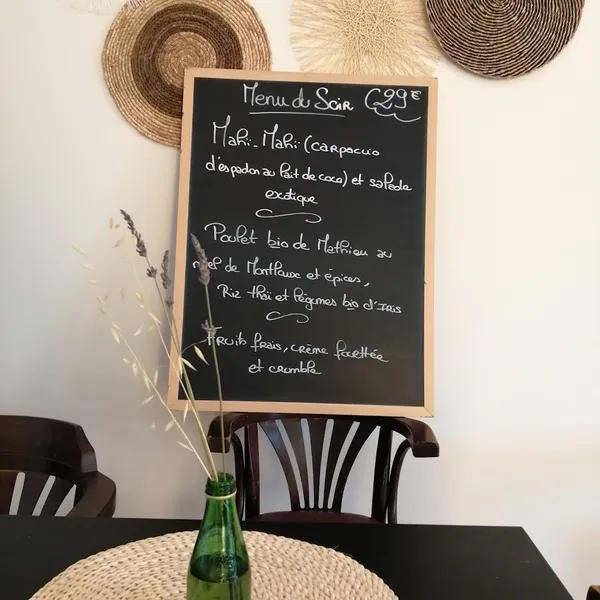 Menu du Soir (29€
Mahi-Mahi (carpaccio
d'espadon au lait de coco) et salade
exotique
Poulet bio de Mathieu au
miel de Montlaux et épices,
Riz thaï et légumes bio d'Iris
Fruits frais, crème fouettée
et crumble